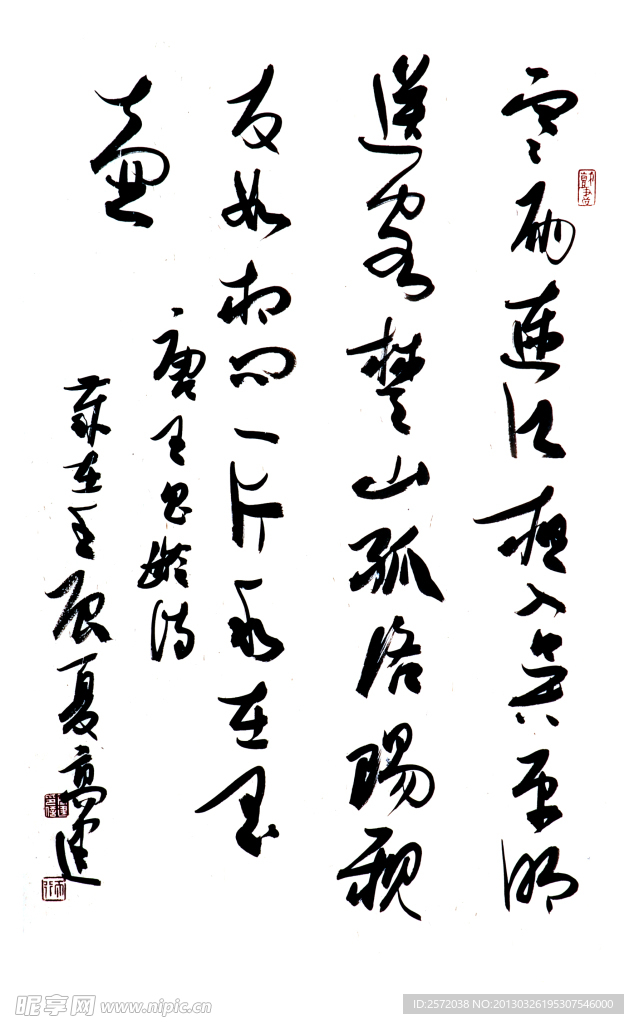 寒雨連江夜入吴平明
送客楚山孤洛陽親
友如相問一片冰心在玉
壺
唐王昌齡詩
歲在壬辰夏高建
昵享网 www.nipic.cn
ID:2572038 NO:20130326195307546000